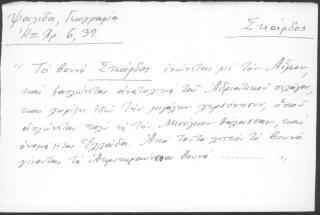 Ψαλίδα, Γεωγραφία
Ηπ. Χρ. 6, 39.
Σκάρδος
"Το βουνό Σκάρδος ενώνεται με τον Αίμον,
και ξαπλώνεται ανατολικά του Αδριατικού πελάγου,
και χωρίζει εδώ την μεγάλην χερσόνησον, οπού
απλώνεται πολύ εις την Μεσόγειον θάλασσαν, και
ονομάζεται Ελλάδα. Από τούτο λοιπόν το βουνό
γίνονται τα Ακροκεραύνια βουνά ............"